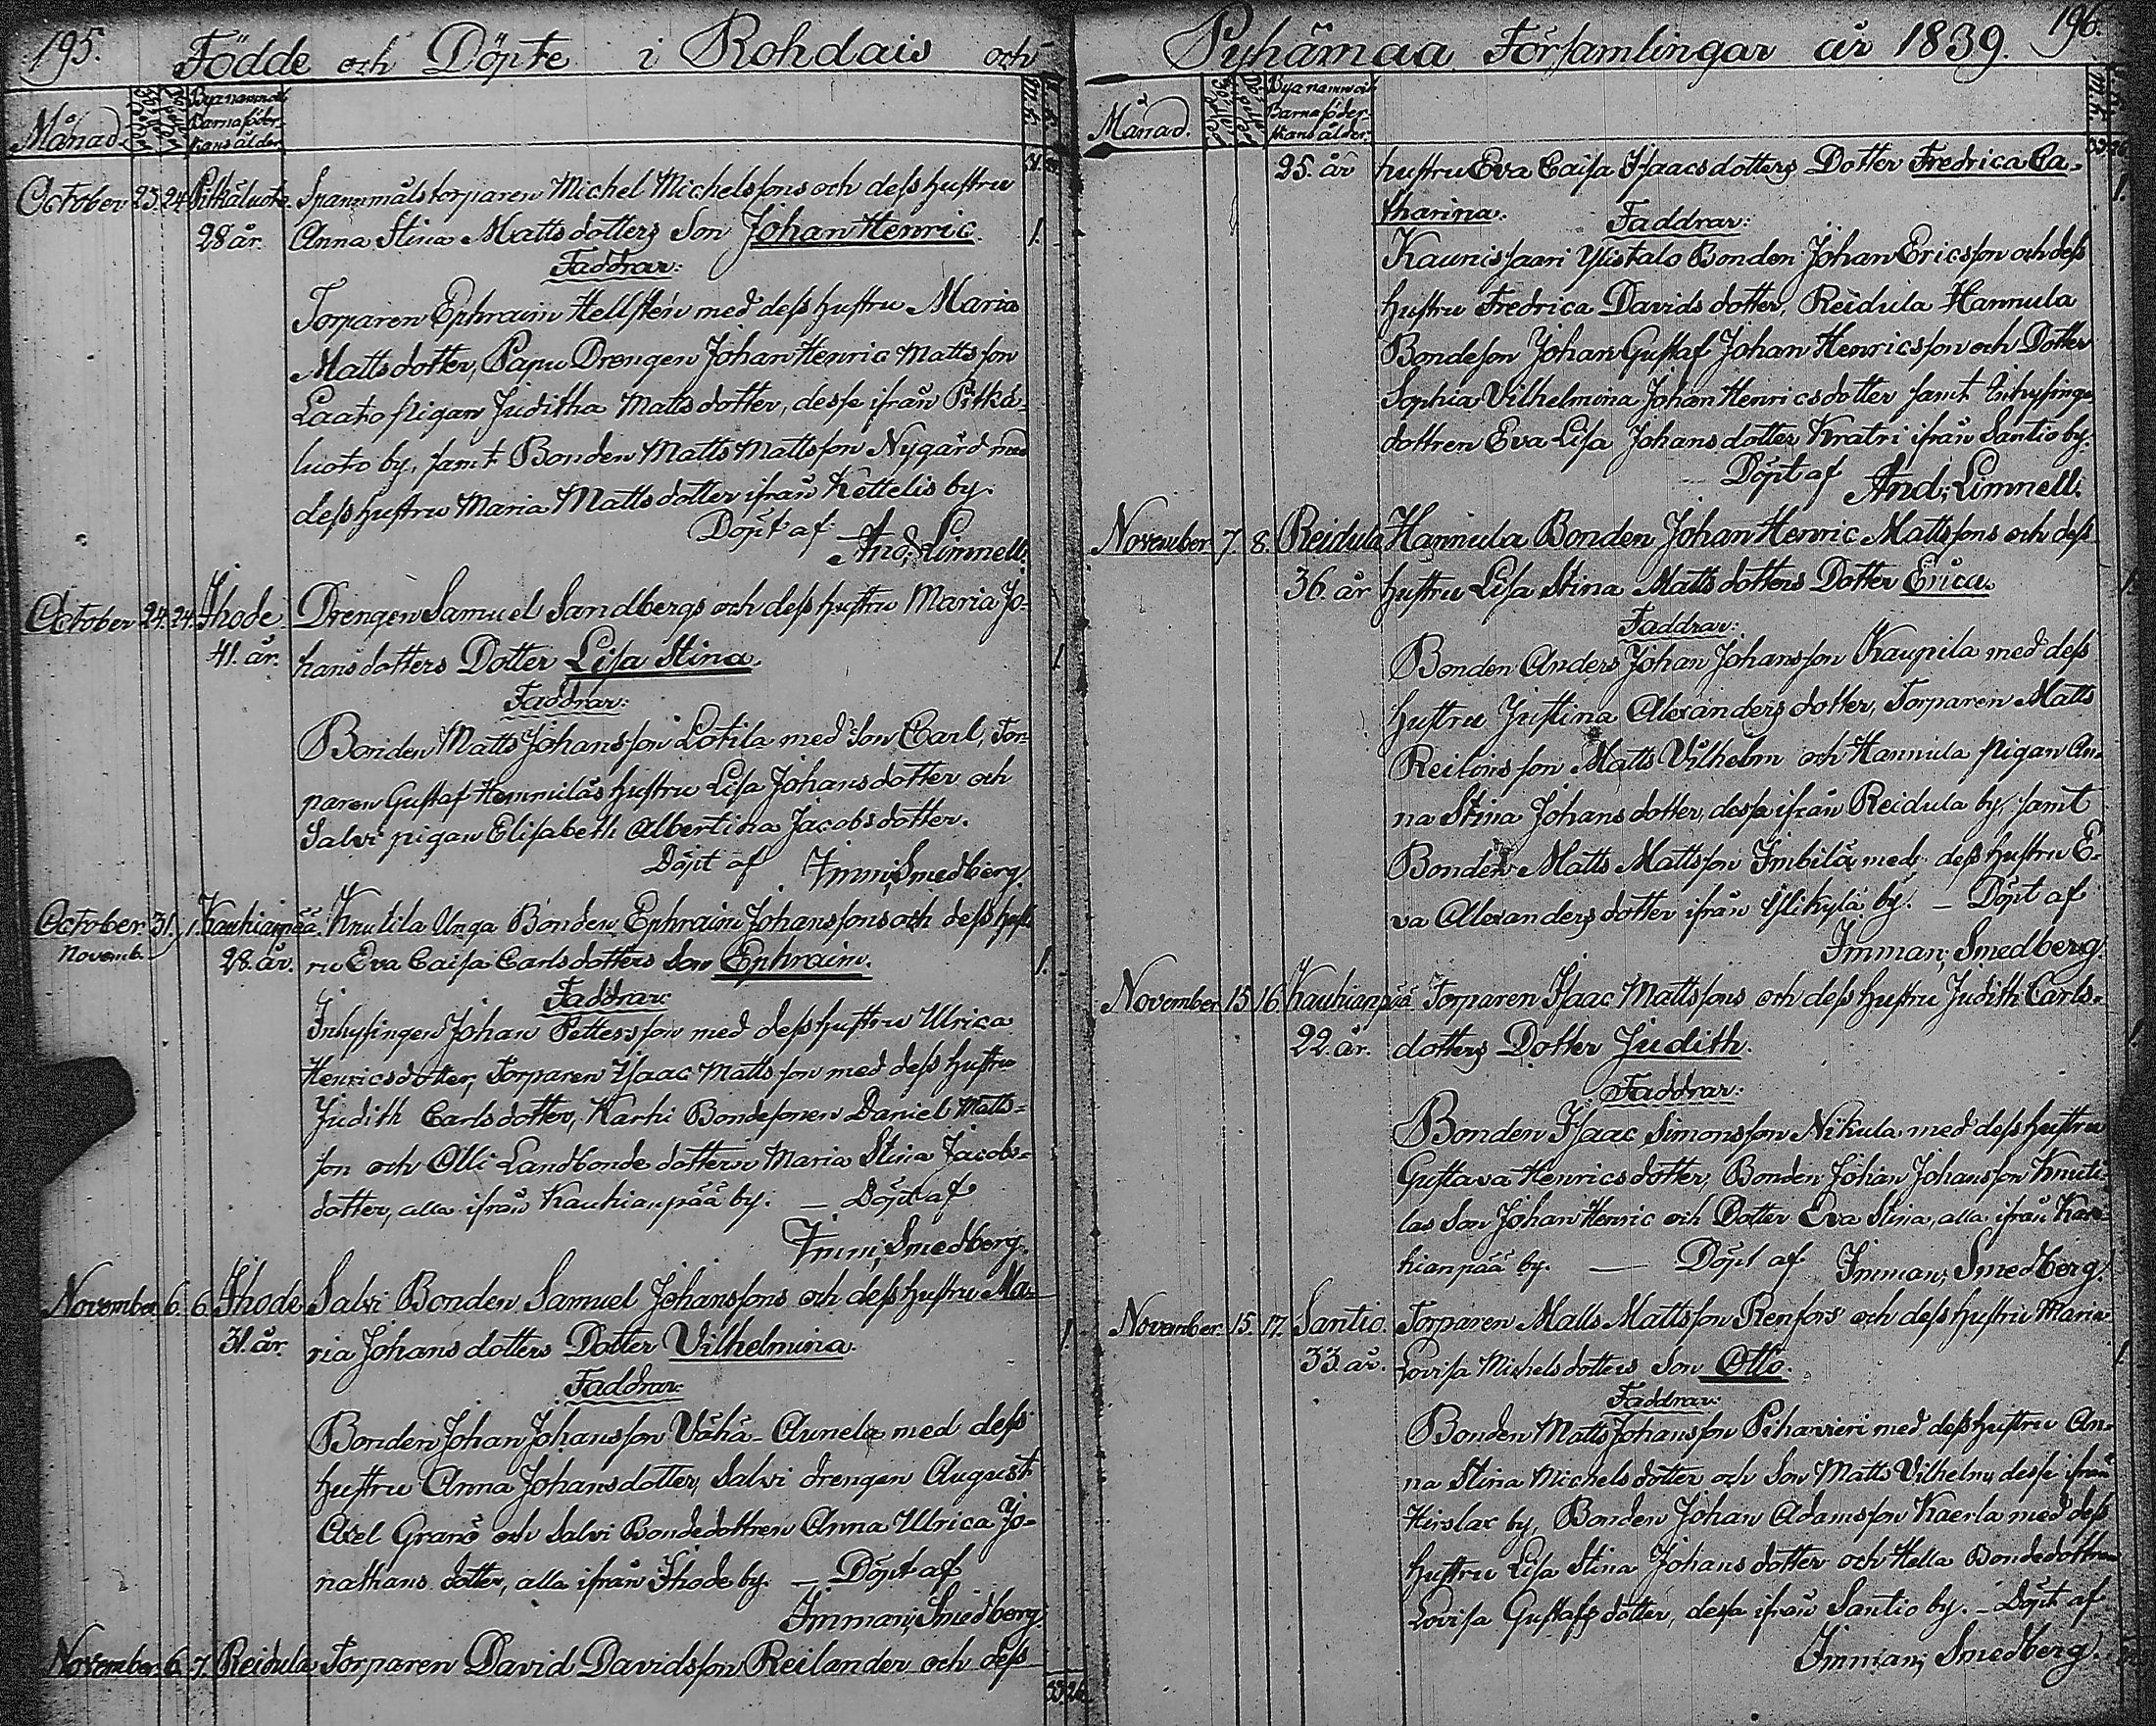 195.
Födde och Döpte i Rohdais och
Månad.
Byanamn och
Barnaföder-
skans ålder.
October 23. 24. Pitkäluoto. Spannmålstorparen Michel Michelssons och dess hustru
28 år. Anna Stina Mattsdotters Son Johan Henric. 1.
Faddrar:
Torparen Ephraim Hellstén med dess hustru Maria
Mattsdotter, Papu Drengen Johan Henric Mattsson
Laato pigan Juditha Mattsdotter, desse ifrån Pitkä-
luoto by, samt Bonden Matts Mattsson Nygård med
dess hustru Maria Mattsdotter ifrån Kettelis by.
Döpt af
And. Limnell.
October 24. 24. Ihode Drengen Samuel Sandbergs och dess hustru Maria Jo-
41. år. hansdotters Dotter Lisa Stina. 1
Faddrar:
Bonden Matts Johansson Lotila med Son Carl, Tor-
paren Gustaf Hemmiläs hustru Lisa Johansdotter och
Salvi pigan Elisabeth Albertina Jacobsdotter.
Döpt af Imm; Smedberg.
October. 31. 1. Kauhianpää. Knutila Unga Bonden Ephraim Johanssons och dess hust-
Novemb. 28. år. ru Eva Caisa Carlsdotters Son Ephraim. 1.
Faddrar:
Inhysingen Johan Pettersson med dess hustru Ulrica
Henricsdotter, Torparen Isaac Mattsson med dess hustru
Judith Carlsdotter, Karhi Bondesonen Daniel Matts-
son och Olli Landbonde dottern Maria Stina Jacobs-
dotter, alla ifrån Kauhianpää by. — Döpt af
Imm; Smedberg.
November. 6. 6. Ihode Salvi Bonden Samuel Johanssons och dess hustru Ma-
31. år. ria Johansdotters Dotter Vilhelmina. 1.
Faddrar:
Bonden Johan Johansson Vähä-Aunela med dess
hustru Anna Johansdotter, Salvi drengen August
Axel Granö och Salvi Bondedottren Anna Ulrica Jo-
nathans dotter, alla ifrån Ihode by. — Döpt af
Imman; Smedberg.
November. 6. 7. Reidula Torparen David Davidsson Reilander och dess
33. 26.
Pyhämaa Församlingar år 1839. 196.
Månad.
Byanamn och
Barnaföder-
skans ålder.
25. år hustru Eva Caisa Isaacsdotters Dotter Fredrica Ca- 1.
tharina. Faddrar:
Kaurissaari Ylistalo Bonden Johan Ericsson och dess
hustru Fredrica Davidsdotter, Reidula Hannula
Bondeson Johan Gustaf Johan Henricsson och Dotter
Sophia Vilhelmina Johan Henricsdotter samt Inhysinge
dottren Eva Lisa Johansdotter Kratri ifrån Santio by.
Döpt af And; Limnell.
November. 7. 8. Reidula Hannula Bonden Johan Henric Mattssons och dess
36. år hustru Lisa Stina Mattsdotters Dotter Erica. 1.
Faddrar:
Bonden Anders Johan Johansson Kaupila med dess
hustru Justina Alexandersdotter, Torparen Matts
Reilins son Matts Vilhelm och Hannula pigan An-
na Stina Johansdotter, desse ifrån Reidula by, samt
Bonden Matts Mattsson Imbilä med dess hustru E-
va Alexandersdotter ifrån Ylikylä by. — Döpt af
Imman; Smedberg.
November. 15. 16. Kauhianpää Torparen Isaac Mattssons och dess hustru Judith Carls-
22. år. dotters Dotter Judith. 1.
Faddrar:
Bonden Isaac Simonsson Nikula med dess hustru
Gustava Henricsdotter, Bonden Johan Johansson Knuti-
las Son Johan Henric och Dotter Eva Stina, alla ifrån Kau-
hianpää by. — Döpt af Imman; Smedberg.
November. 15. 17. Santio. Torparen Matts Mattsson Renfors och dess hustru Maria
33. år. Lovisa Michelsdotters Son Otto. 1.
Faddrar:
Bonden Matts Johansson Pihavieri med dess hustru An-
na Stina Michelsdotter och Son Matts Vilhelm, desse ifrån
Hirslax by, Bonden Johan Adamsson Kaerla med dess
hustru Lisa Stina Johansdotter och Hella Bondedottren
Lovisa Gustafsdotter, dessa ifrån Santio by. — Döpt af
Imman; Smedberg.